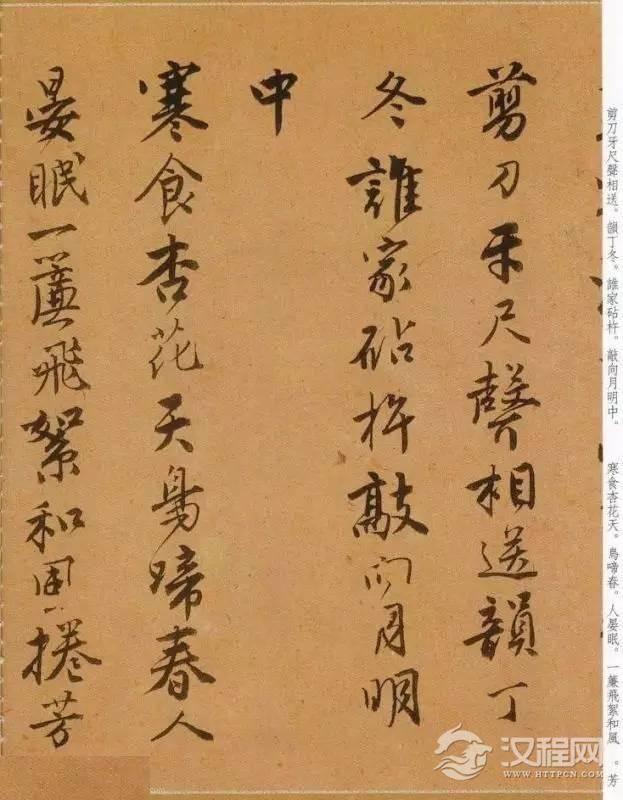 剪刀牙尺聲相送韻丁
冬誰家砧杵敲向月明
中
寒食杏花天鳥啼春人
晏眠一簾飛絮和風捲芳
剪刀牙尺聲相送。韻丁冬。誰家砧杵。敲向月明中。
寒食杏花天。鳥啼春。人晏眠。一簾飛絮和風 。芳
汉程网
WWW.HTTPCN.COM